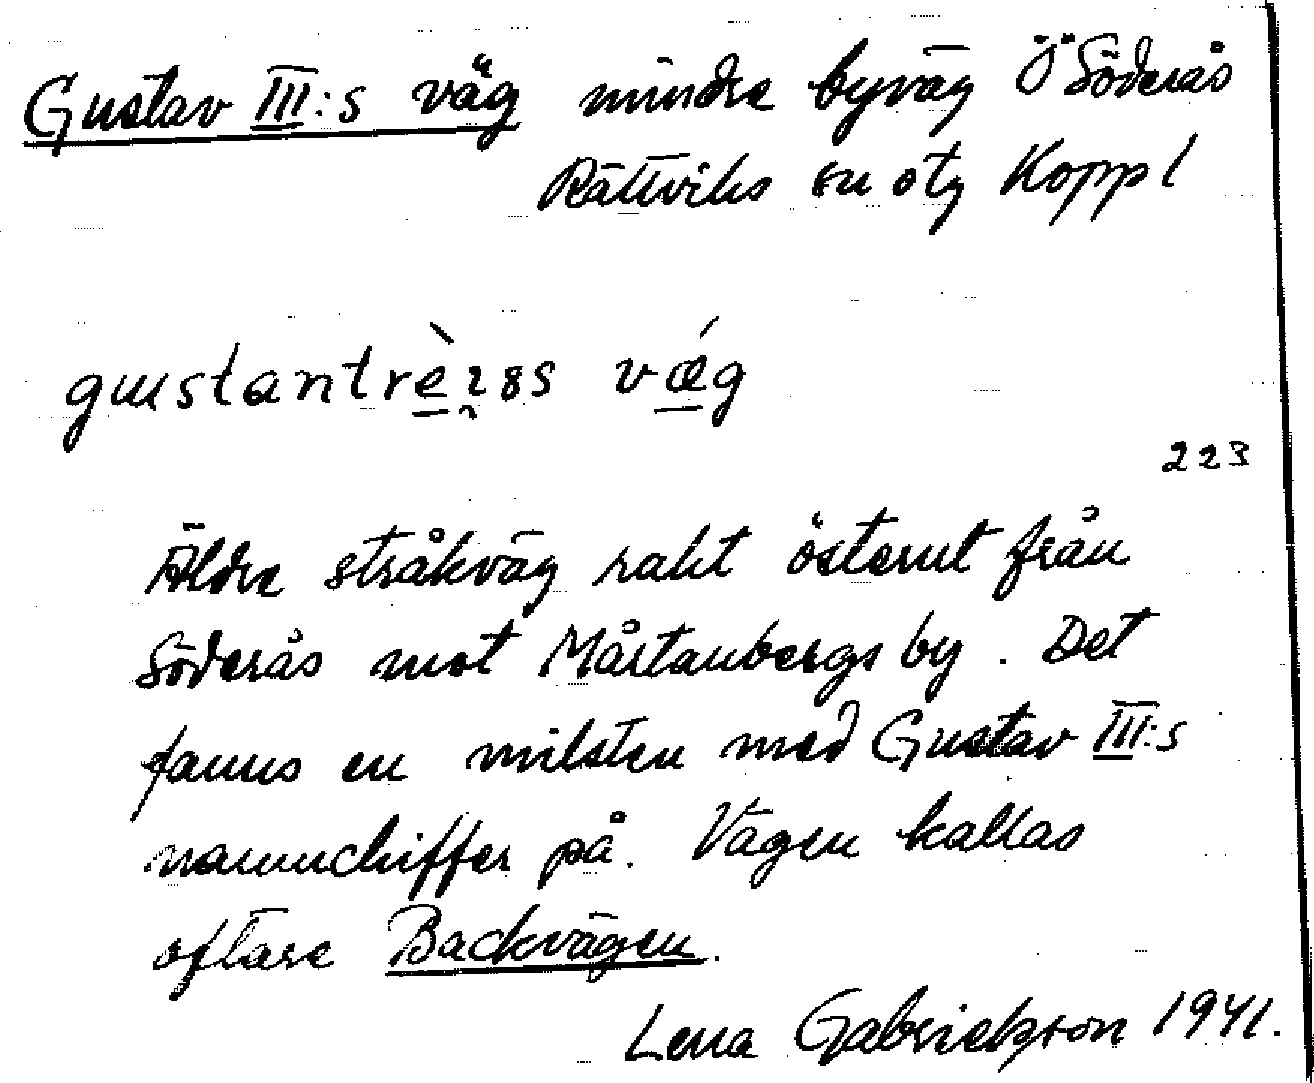 Gustav III:s väg mindre byväg Ö Söderås
Rättviks sn otg Koppl
gustantrèɩ8s vǽg
223
Äldre stråkväg rakt österut från
Söderås mot Mårtanbergs by. Det
fanns en milsten med Gustav III:s
namnchiffer på. Vägen kallas
oftare Backvägen.
Lena Gabrielsson 1941.